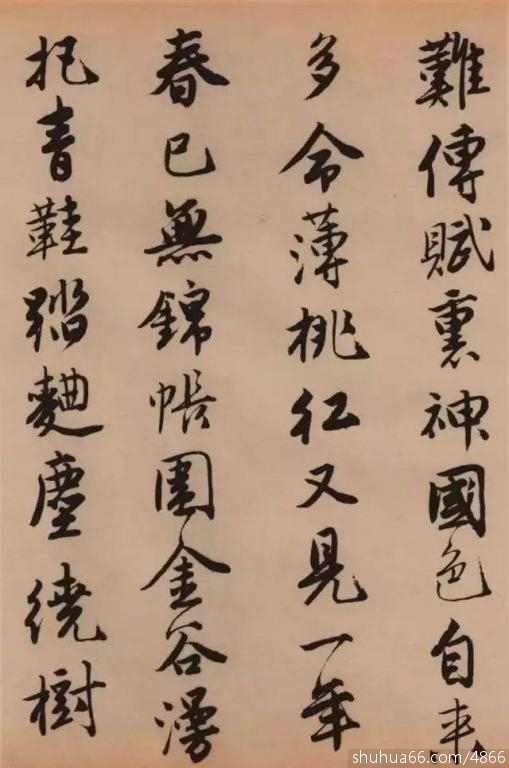 難傳賦裏神國色自來
多命薄桃紅又見一年
春已無錦帳圍金谷漫
把青鞋踏麴塵繞樹
shuhua66.com/4866